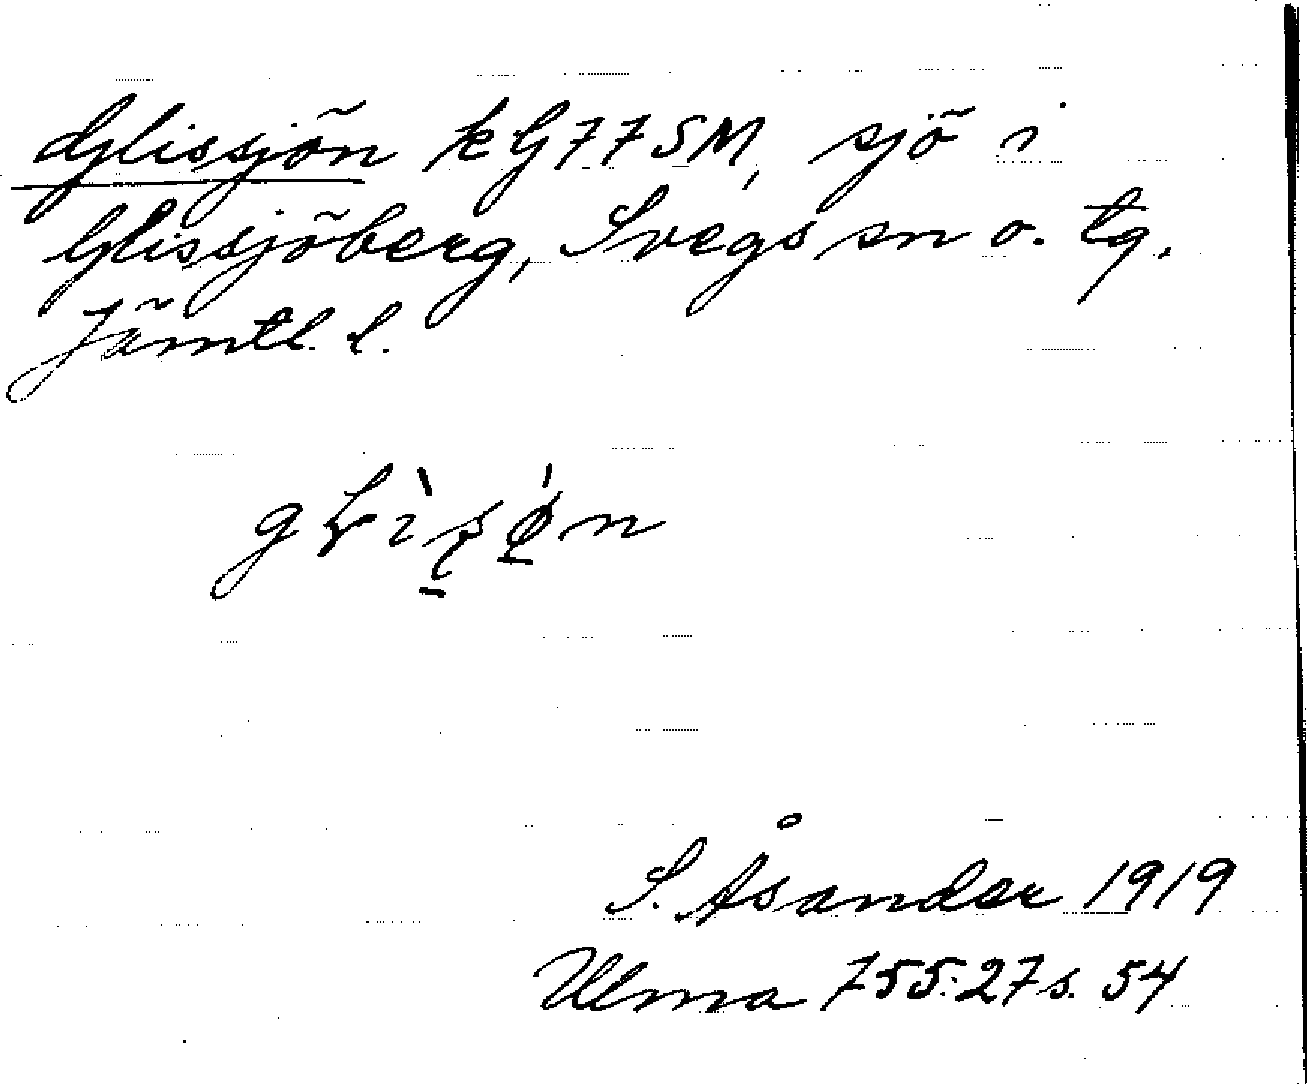 Glissjön kG77SM, sjö i
Glissjöberg, Svegs sn o. tg.
Jämtl. l.
S. Åsander 1919
Ulma 755:27 s. 54